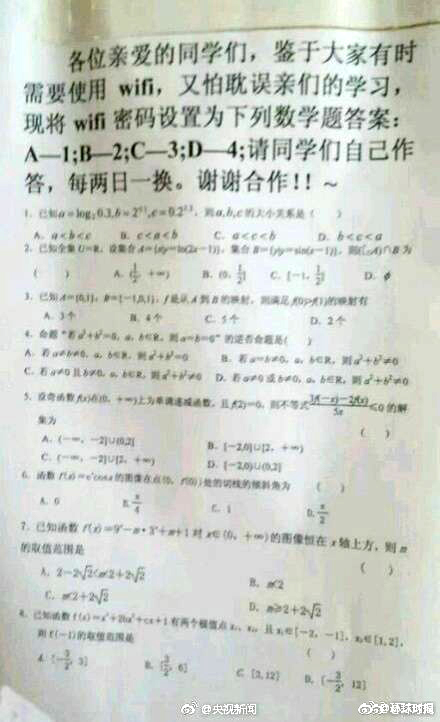 各位亲爱的同学们，鉴于大家有时
需要使用 wifi，又怕耽误亲们的学习，
现将 wifi 密码设置为下列数学题答案：
A—1;B—2;C—3;D—4;请同学们自己作
答，每两日一换。谢谢合作！！～
1. 已知a=log₂0.3,b=2^0.1,c=0.2^1.3，则a,b,c的大小关系是（ ）
A. a<b<c B. c<a<b C. a<c<b D. b<c<a
2. 已知全集U=R，设集合A={x|y=ln(2x-1)}，集合B={y|y=sin(x-1)}，则(∁UA)∩B为
（ ） A. (1/2, +∞) B. (0, 1/2] C. [-1, 1/2] D. ϕ
3. 已知A={0,1}，B={-1,0,1}，f是从A到B的映射，则满足f(0)>f(1)的映射有
A. 3个 B. 4个 C. 5个 D. 2个
4. 命题“若a²+b²=0，a，b∈R，则a=b=0”的逆否命题是( )
A. 若a≠b≠0，a，b∈R，则a²+b²=0 B. 若a=b≠0，a，b∈R，则a²+b²≠0
C. 若a≠0且b≠0，a，b∈R，则a²+b²≠0 D. 若a≠0或b≠0，a，b∈R，则a²+b²≠0
5. 设奇函数f(x)在(0，+∞)上为单调递减函数，且f(2)=0，则不等式 3f(-x)-2f(x)/5x ≤0的解
集为 （ ）
A. (-∞，-2]∪(0,2] B. [-2,0]∪[2，+∞)
C. (-∞，-2]∪[2，+∞) D. [-2,0)∪(0,2]
6. 函数f(x)=eˣcosx的图像在点(0，f(0))处的切线的倾斜角为 （ ）
A. 0 B. π/4 C. 1 D. π/2
7. 已知函数f(x)=9ˣ-m·3ˣ+m+1对x∈(0，+∞)的图像恒在x轴上方，则m
的取值范围是 （ ）
A. 2-2√2<m<2+2√2 B. m<2
C. m<2+2√2 D. m≥2+2√2
8. 已知函数f(x)=x³+2bx²+cx+1有两个极值点x₁，x₂，且x₁∈[-2，-1]，x₂∈[1,2]，
则f(-1)的取值范围是 （ ）
A. [-3/2, 3] B. [3/2, 6] C. [3,12] D. [-3/2, 12]
@央视新闻
@环球时报